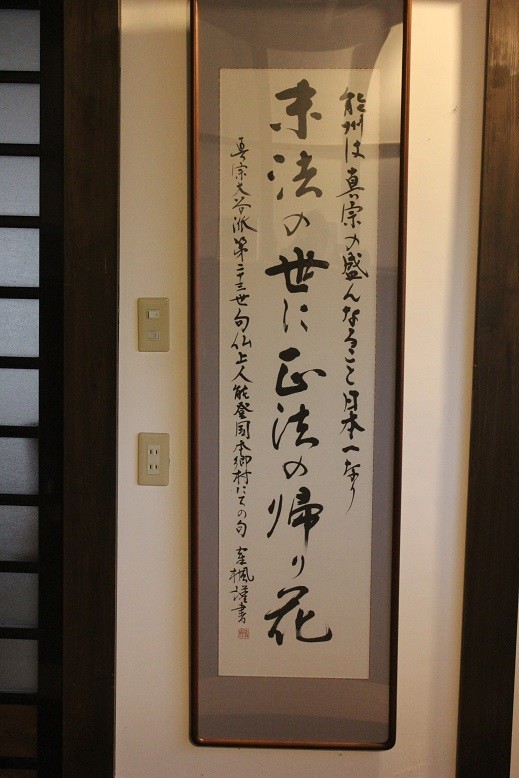 能州は真宗の盛んなること日本一なり
末法の世に正法の帰り花
真宗大谷派第二十三世句仏上人能登国本郷村にての句 楓謹書